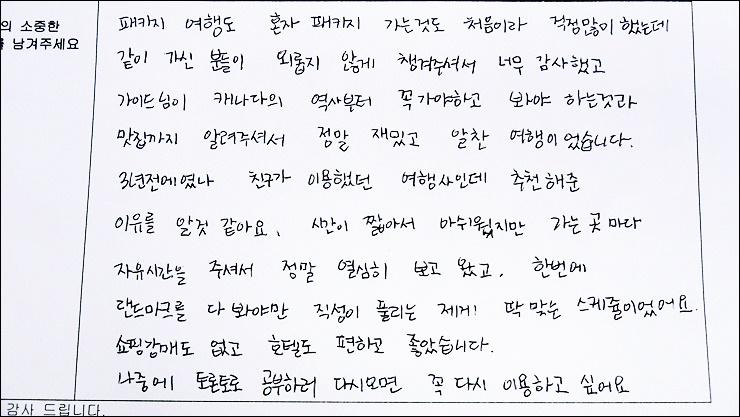 의 소중한
남겨주세요
패키지 여행도 혼자 패키지 가는것도 처음이라 걱정많이했는데
같이 가신 분들이 외롭지 않게 챙겨주셔서 너무 감사했고
가이드님이 캐나다의 역사부터 꼭가야하고 봐야 하는것과
맛집까지 알려주셔서 정말 재밌고 알찬 여행이었습니다.
3년전에였나 친구가 이용했던 여행사인데 추천해준
이유를 알것 같아요. 시간이 짧아서 아쉬웠지만 가는 곳 마다
자유시간을 주셔서 정말 열심히 보고 왔고, 한번에
랜드마크를 다 봐야만 직성이 풀리는 제게! 딱 맞는 스케쥴이었어요.
쇼핑강매도 없고 호텔도 편하고 좋았습니다.
나중에 토론토로 공부하러 다시오면 꼭 다시 이용하고 싶어요
감사 드립니다.